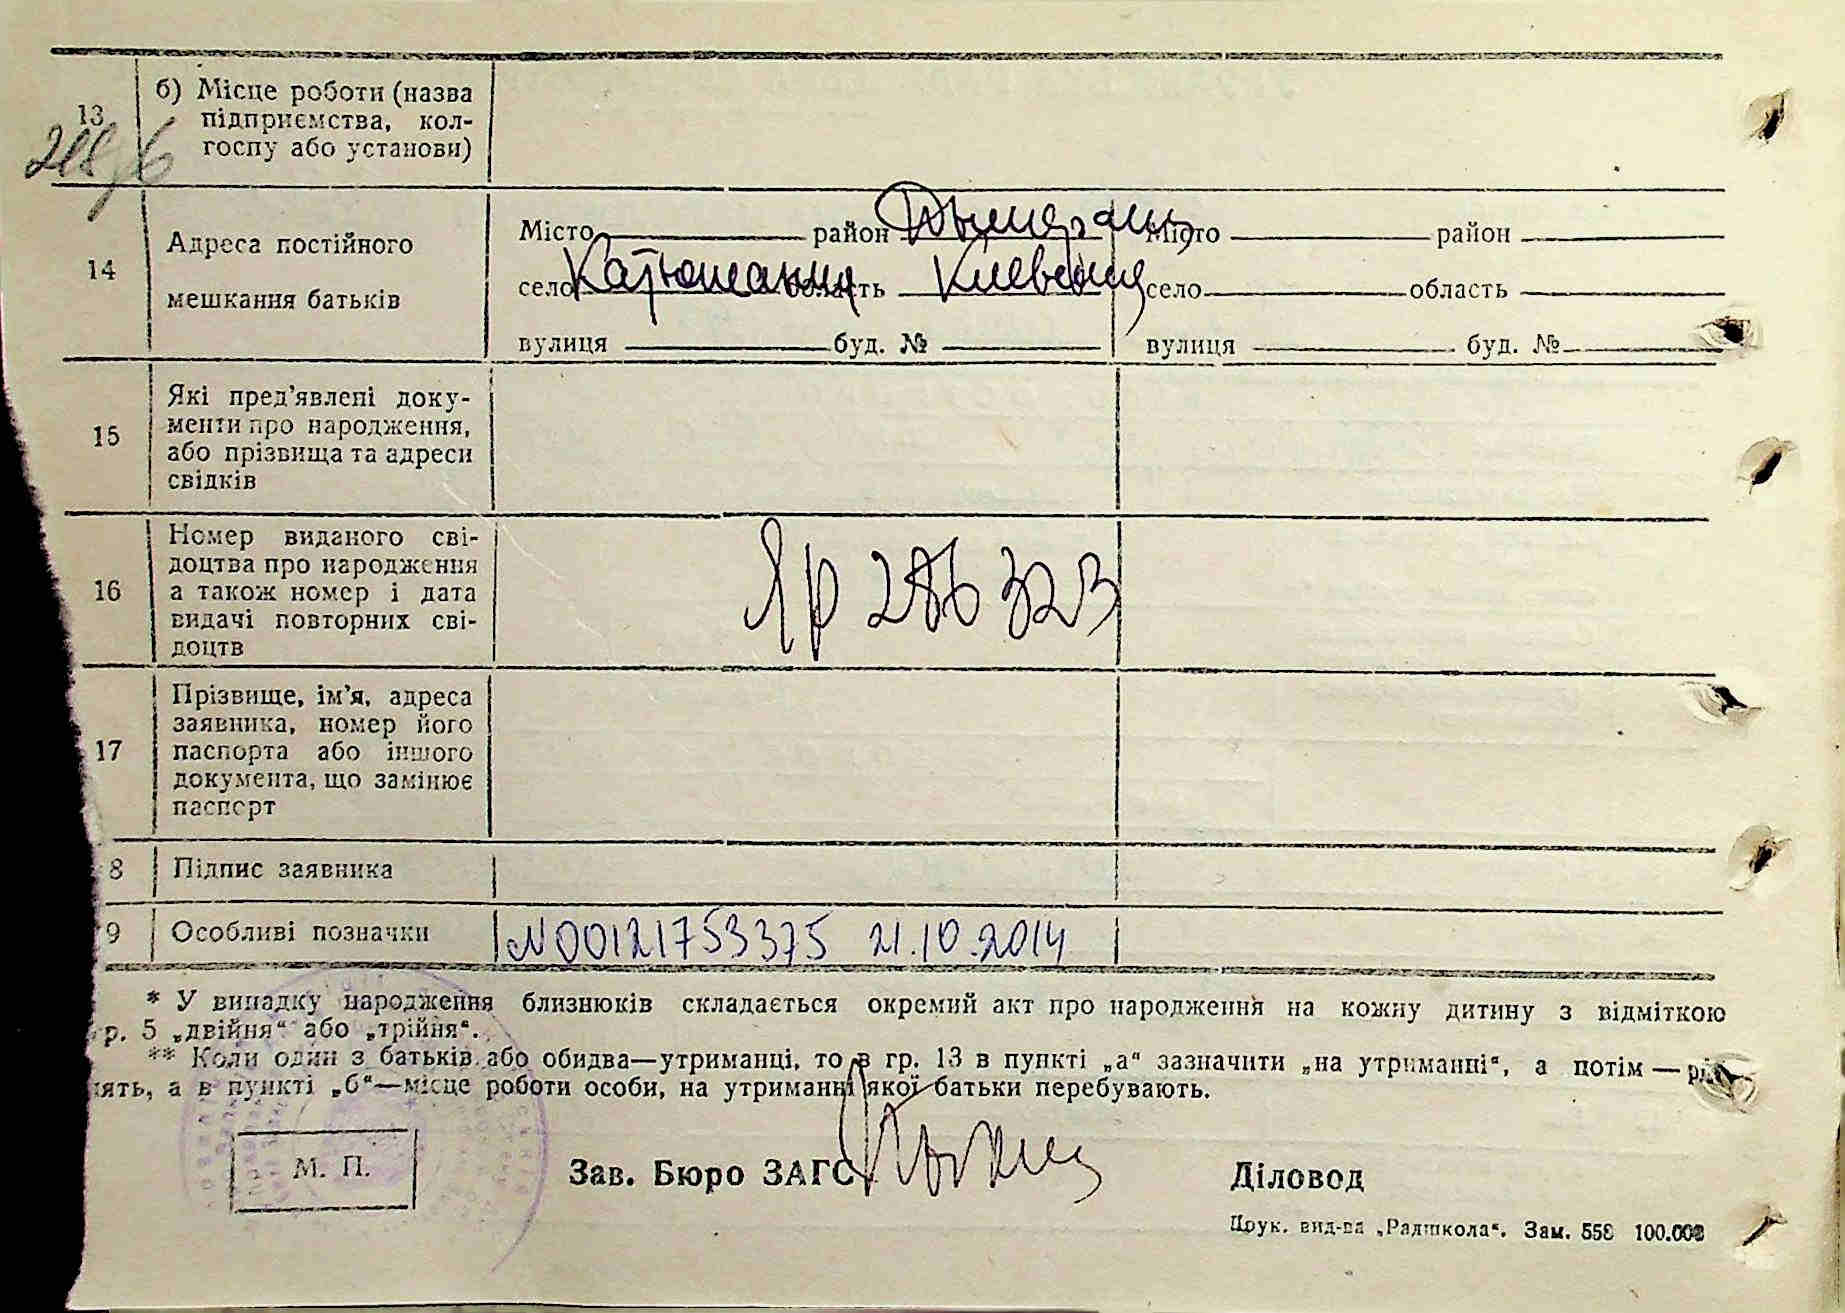 13
б) Місце роботи (назва
підприємства, кол-
госпу або установи)
14
Адреса постійного
мешкання батьків
Місто район Місто район
село Катюжанка область Киевская село область
вулиця буд. № вулиця буд. №
15
Які пред'явлені доку-
менти про народження,
або прізвища та адреси
свідків
16
Номер виданого сві-
доцтва про народження
а також номер і дата
видачі повторних сві-
доцтв
ЯР 286323
17
Прізвище, ім'я, адреса
заявника, номер його
паспорта або іншого
документа, що замінює
паспорт
8 Підпис заявника
9 Особливі позначки N00121753375 21.10.2014
* У випадку народження близнюків складається окремий акт про народження на кожну дитину з відміткою
гр. 5 „двійня“ або „трійня“.
** Коли один з батьків або обидва—утриманці, то в гр. 13 в пункті „а“ зазначити „на утриманні“, а потім —
, а в пункті „б“—місце роботи особи, на утриманні якої батьки перебувають.
М. П. Зав. Бюро ЗАГС Діловод
Друк. вид-ва „Радшкола“. Зам. 558 100.000